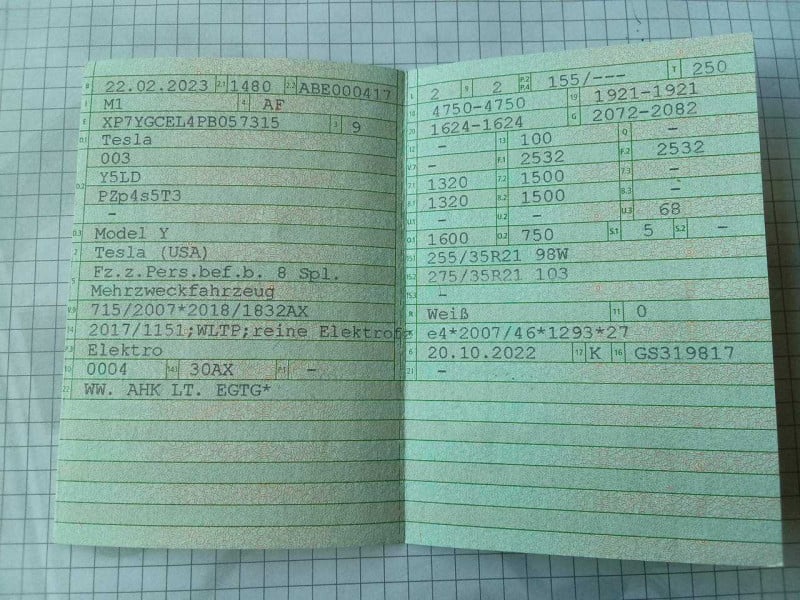 B 22.02.2023 2.1 1480 2.2 ABE000417
J M1 4 AF
E XP7YGCEL4PB057315 3 9
D.1 Tesla
003
D.2 Y5LD
PZp4s5T3
-
D.3 Model Y
2 Tesla (USA)
5 Fz.z.Pers.bef.b. 8 Spl.
Mehrzweckfahrzeug
V.9 715/2007*2018/1832AX
14 2017/1151;WLTP;reine Elektrofz
P.3 Elektro
10 0004 14.1 30AX P.1 -
22 WW. AHK LT. EGTG*
L 2 9 2 P.2 P.4 155/--- T 250
18 4750-4750 19 1921-1921
20 1624-1624 G 2072-2082
12 - 13 100 Q -
V.7 - F.1 2532 F.2 2532
7.1 1320 7.2 1500 7.3 -
8.1 1320 8.2 1500 8.3 -
U.1 - U.2 - U.3 68
O.1 1600 O.2 750 S.1 5 S.2 -
15.1 255/35R21 98W
15.2 275/35R21 103
15.3 -
R Weiß 11 0
K e4*2007/46*1293*27
6 20.10.2022 17 K 16 GS319817
21 -